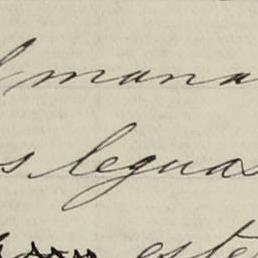 mana
s leguas
este